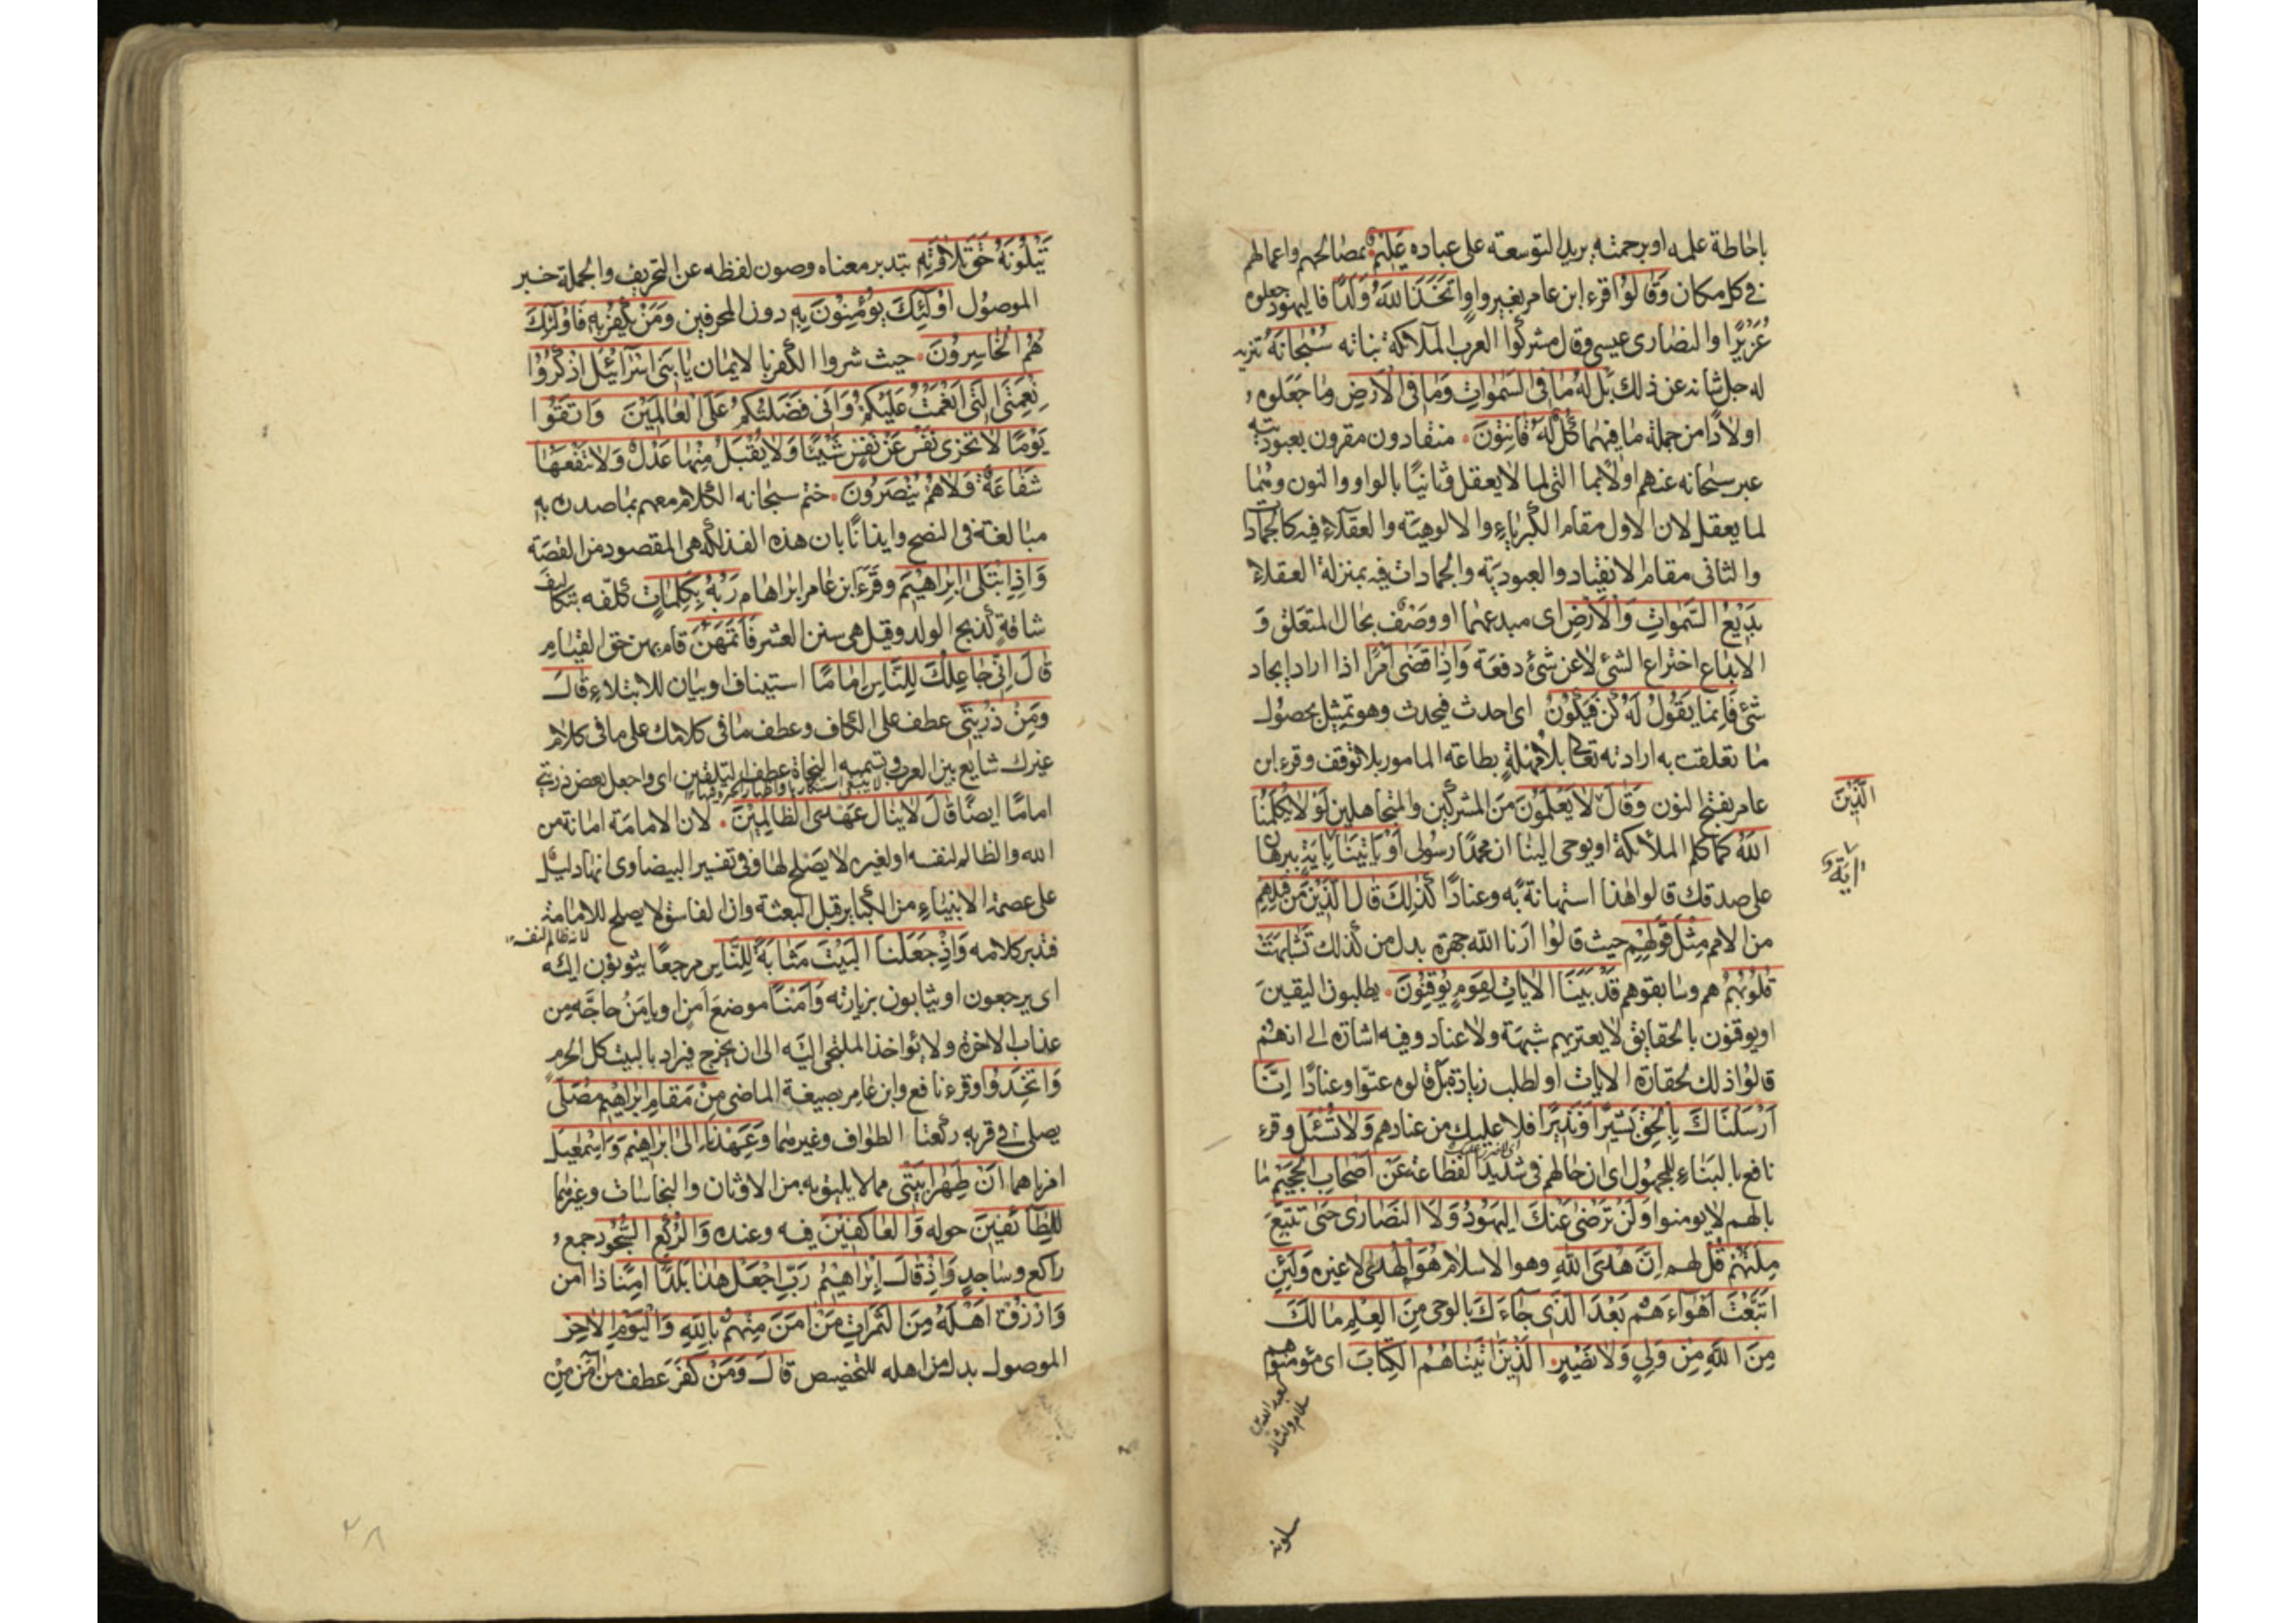 باحاطة علمه او برحمته يريد التوسعة على عباده عَلِيمٌ بمصالحهم واعمالهم
في كل مكان وَقَالُوا قرء ابن عامر بغير واو اتَّخَذَ اللّٰهُ وَلَدًا فاليهود جعلوه
عُزَيْرًا والنصارى عيسى وقال مشركوا العرب الملائكة بناته سُبْحَانَهُ تنزيه
له جل شانه عن ذلك بَلْ لَهُ مَا فِي السَّمٰوَاتِ وَمَا فِي الْاَرْضِ وما جعلوه
اولادًا من جملة ما فيهما كُلٌّ لَهُ قَانِتُونَ منقادون مقرون بعبوديته
عبر سبحانه عنهم اولا بما التى لما لا يعقل وثانيًا بالواو والنون وهما
لما يعقل لان الاول مقام الكبرياء والالوهية والعقلاء فيه كالجمادات
والثانى مقام الانقياد والعبودية والجمادات فيه بمنزلة العقلاء
بَدِيعُ السَّمٰوَاتِ وَالْاَرْضِ اى مبدعهما او وصف بحال المتعلق و
الابداع اختراع الشئ لا عن شئ دفعة وَاِذَا قَضٰى اَمْرًا اذا اراد ايجاد
شئ فَاِنَّمَا يَقُولُ لَهُ كُنْ فَيَكُونُ اى احدث فيحدث وهو تمثيل بحصول
ما تعلقت به ارادته تعالى بلا مهلة بطاعة المامور بلا توقف وقرء ابن
عامر بفتح النون وَقَالَ لَا يَعْلَمُونَ من المشركين والمتجاهلين لَوْلَا يُكَلِّمُنَا
الَّذِينَ
اللّٰهُ كما كلم الملائكة او يوحى الينا ان محمدًا رسولى اَوْ تَاْتِينَا بِاٰيَةٍ ببرهان
على صدقك قالوا هذا استهانة به وعنادًا كَذٰلِكَ قَالَ الَّذِينَ مِنْ قَبْلِهِمْ
من الامم مِثْلَ قَوْلِهِمْ حيث قالوا ارنا الله جهرة بدل من كذلك تَشَابَهَتْ
قُلُوبُهُمْ هم وسابقوهم قَدْ بَيَّنَّا الْاٰيَاتِ لِقَوْمٍ يُوقِنُونَ يطلبون اليقين
او يوقنون بالحقايق لا يعتريهم شبهة ولا عناد وفيه اشارة الى انهم
قالوا ذلك لحقارة الايات او لطلب زيادة بل قالوه عتوا وعنادًا اِنَّا
اَرْسَلْنَاكَ بِالْحَقِّ بَشِيرًا وَنَذِيرًا فلا عليك من عنادهم وَلَا تُسْئَلُ وقرء
نافع بالبناء للمجهول اى ان حالهم فى شديد الفظاعة عَنْ اَصْحَابِ الْجَحِيمِ ما
بالهم لا يومنوا وَلَنْ تَرْضٰى عَنْكَ الْيَهُودُ وَلَا النَّصَارٰى حَتّٰى تَتَّبِعَ
مِلَّتَهُمْ قُلْ لهم اِنَّ هُدَى اللّٰهِ وهو الاسلام هُوَ الْهُدٰى لا غيره وَلَئِنِ
اتَّبَعْتَ اَهْوَاءَهُمْ بَعْدَ الَّذِى جَاءَكَ بالوحى مِنَ الْعِلْمِ مَا لَكَ
مِنَ اللّٰهِ مِنْ وَلِيٍّ وَلَا نَصِيرٍ الَّذِينَ اٰتَيْنَاهُمُ الْكِتَابَ اى مؤمنوهم
يَتْلُونَهُ حَقَّ تِلَاوَتِهِ بتدبر معناه وصون لفظه عن التحريف والجملة خبر
الموصول اُولٰئِكَ يُؤْمِنُونَ بِهِ دون المحرفين وَمَنْ يَكْفُرْ بِهِ فَاُولٰئِكَ
هُمُ الْخَاسِرُونَ حيث شروا الكفر بالايمان يَا بَنِى اِسْرَائِيلَ اذْكُرُوا
نِعْمَتِىَ الَّتِى اَنْعَمْتُ عَلَيْكُمْ وَاَنِّى فَضَّلْتُكُمْ عَلَى الْعَالَمِينَ وَاتَّقُوا
يَوْمًا لَا تَجْزِى نَفْسٌ عَنْ نَفْسٍ شَيْئًا وَلَا يُقْبَلُ مِنْهَا عَدْلٌ وَلَا تَنْفَعُهَا
شَفَاعَةٌ وَلَا هُمْ يُنْصَرُونَ ختم سبحانه الكلام معهم بما صدر به
مبالغة فى النصح وايذانًا بان هذه الفذلكة هى المقصود من القصة
وَاِذِ ابْتَلٰى اِبْرَاهِيمَ وقرء ابن عامر ابراهام رَبُّهُ بِكَلِمَاتٍ كلفه بتكاليف
شاقة كذبح الولد وقيل هى سنن العشر فَاَتَمَّهُنَّ قام بهن حق القيام
قَالَ اِنِّى جَاعِلُكَ لِلنَّاسِ اِمَامًا استيناف او بيان للابتلاء قَالَ
وَمِنْ ذُرِّيَّتِى عطف على الكاف وعطف ما فى كلامك على ما فى كلام
غيرك شايع بين العرب وتسميه النحاة عطف التلقين اى واجعل بعض ذريتى
امامًا ايضًا قَالَ لَا يَنَالُ عَهْدِى الظَّالِمِينَ لان الامامة امانة من
الله والظالم لنفسه او لغيره لا يصلح لها وفى تفسير البيضاوى انها دليل
على عصمة الانبياء من الكباير قبل البعثة وان الفاسق لا يصلح للامامة
لانه ظالم لنفسه
فتدبر كلامه وَاِذْ جَعَلْنَا الْبَيْتَ مَثَابَةً لِلنَّاسِ مرجعًا يثوبون اليه
اى يرجعون او يثابون بزيارته وَاَمْنًا موضع امن او يامن حاجه من
عذاب الاخرة ولا يؤاخذ الملتجى اليه الى ان يخرج فيراد بالبيت كل الحرم
وَاتَّخِذُوا وقرء نافع وابن عامر بصيغة الماضى مِنْ مَقَامِ اِبْرَاهِيمَ مُصَلًّى
يصلى فى قربه ركعتا الطواف وغيرهما وَعَهِدْنَا اِلٰى اِبْرَاهِيمَ وَاِسْمٰعِيلَ
امرناهما اَنْ طَهِّرَا بَيْتِىَ مما لا يليق به من الاوثان والنجاسات وغيرهما
لِلطَّائِفِينَ حوله وَالْعَاكِفِينَ فيه وعنده وَالرُّكَّعِ السُّجُودِ جمع
راكع وساجد وَاِذْ قَالَ اِبْرَاهِيمُ رَبِّ اجْعَلْ هٰذَا بَلَدًا اٰمِنًا ذا امن
وَارْزُقْ اَهْلَهُ مِنَ الثَّمَرَاتِ مَنْ اٰمَنَ مِنْهُمْ بِاللّٰهِ وَالْيَوْمِ الْاٰخِرِ
الموصول بدل من اهله للتخصيص قَالَ وَمَنْ كَفَرَ عطف من آمن من
٢٨